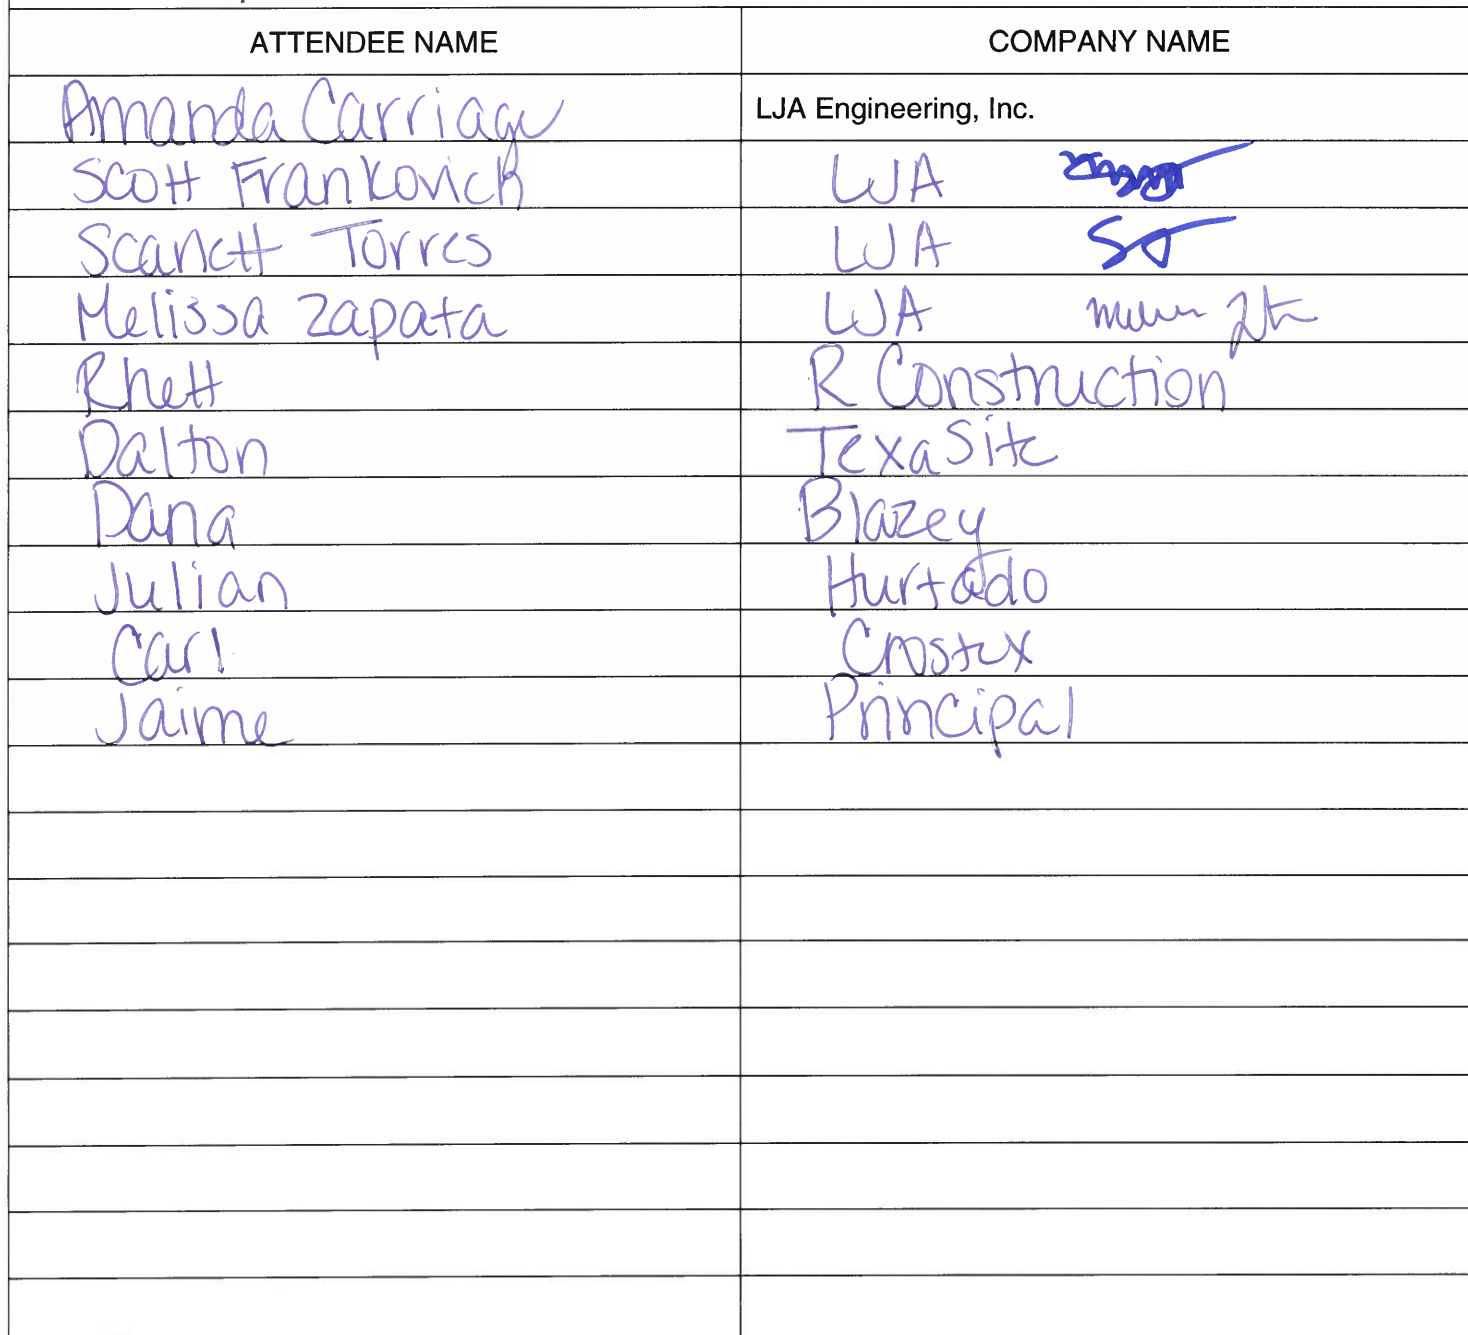 ATTENDEE NAME COMPANY NAME
Amanda Carriage LJA Engineering, Inc.
Scott Frankovich LJA
Scarlett Torres LJA
Melissa Zapata LJA
Rhett R Construction
Dalton TexaSite
Dana Blazey
Julian Hurtado
Carl Crostex
Jaime Principal